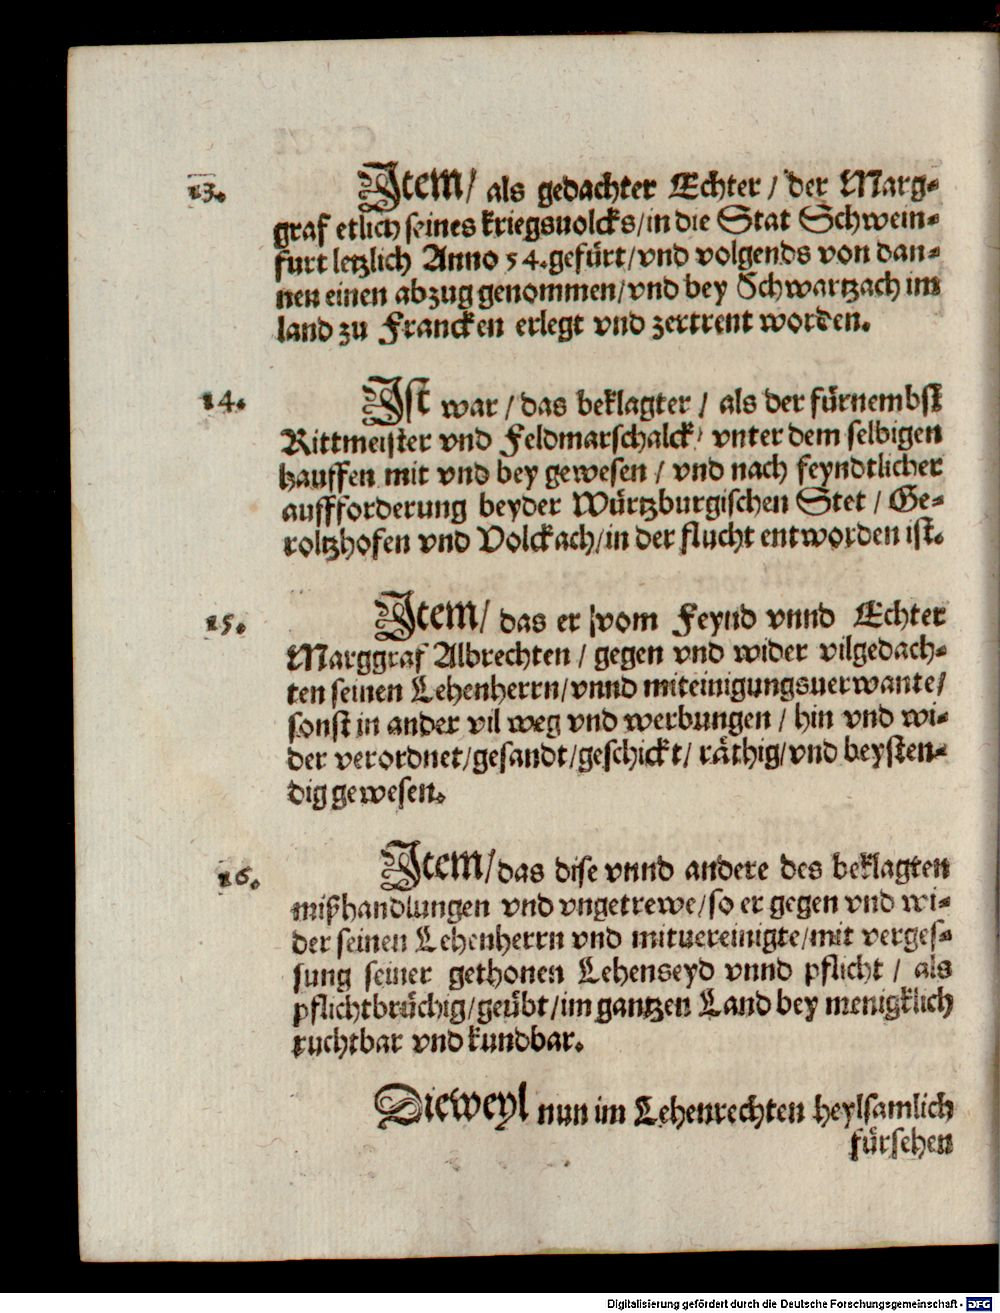 13. Item/ als gedachter Echter/ der Marg-
graf etlich seines kriegsuolcks/in die Stat Schwein-
furt letzlich Anno 54.gefürt/vnd volgends von dan-
nen einen abzug genommen/vnd bey Schwartzach im
land zu Francken erlegt vnd zertrent worden.
14. Ist war/das beklagter/ als der fürnembst
Rittmeister vnd Feldmarschalck/ vnter dem selbigen
hauffen mit vnd bey gewesen/ vnd nach feyndtlicher
auffforderung beyder Würtzburgischen Stet/ Ge-
roltzhofen vnd Volckach/in der flucht entworden ist.
15. Item/ das er vom Feynd vnnd Echter
Marggraf Albrechten/ gegen vnd wider vilgedach-
ten seinen Lehenherrn/vnnd miteinigungsuerwante/
sonst in ander vil weg vnd werbungen/ hin vnd wi-
der verordnet/gesandt/geschickt/ räthig/vnd beysten-
dig gewesen.
16. Item/das dise vnnd andere des beklagten
mißhandlungen vnd vngetrewe/so er gegen vnd wi-
der seinen Lehenherrn vnd mituereinigte/mit verges-
sung seiner gethonen Lehenseyd vnnd pflicht/ als
pflichtbrüchig/geübt/im gantzen Land bey menigklich
ruchtbar vnd kundbar.
Dieweyl nun im Lehenrechten heylsamlich
fürsehen
Digitalisierung gefördert durch die Deutsche Forschungsgemeinschaft - DFG